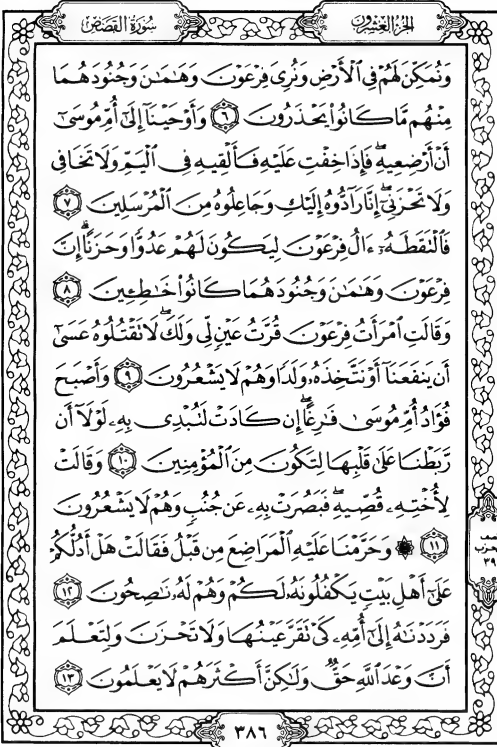 سُورَةُ القَصَصِ الجُزْءُ العِشْرُونَ
وَنُمَكِّنَ لَهُمْ فِي ٱلْأَرْضِ وَنُرِيَ فِرْعَوْنَ وَهَـٰمَـٰنَ وَجُنُودَهُمَا
مِنْهُم مَّا كَانُوا۟ يَحْذَرُونَ ٦ وَأَوْحَيْنَآ إِلَىٰٓ أُمِّ مُوسَىٰٓ
أَنْ أَرْضِعِيهِ ۖ فَإِذَا خِفْتِ عَلَيْهِ فَأَلْقِيهِ فِي ٱلْيَمِّ وَلَا تَخَافِي
وَلَا تَحْزَنِيٓ ۖ إِنَّا رَآدُّوهُ إِلَيْكِ وَجَاعِلُوهُ مِنَ ٱلْمُرْسَلِينَ ٧
فَٱلْتَقَطَهُۥٓ ءَالُ فِرْعَوْنَ لِيَكُونَ لَهُمْ عَدُوًّا وَحَزَنًا ۗ إِنَّ
فِرْعَوْنَ وَهَـٰمَـٰنَ وَجُنُودَهُمَا كَانُوا۟ خَـٰطِـِٔينَ ٨
وَقَالَتِ ٱمْرَأَتُ فِرْعَوْنَ قُرَّتُ عَيْنٍ لِّي وَلَكَ ۖ لَا تَقْتُلُوهُ عَسَىٰٓ
أَن يَنفَعَنَآ أَوْ نَتَّخِذَهُۥ وَلَدًا وَهُمْ لَا يَشْعُرُونَ ٩ وَأَصْبَحَ
فُؤَادُ أُمِّ مُوسَىٰ فَـٰرِغًا ۖ إِن كَادَتْ لَتُبْدِي بِهِۦ لَوْلَآ أَن
رَّبَطْنَا عَلَىٰ قَلْبِهَا لِتَكُونَ مِنَ ٱلْمُؤْمِنِينَ ١٠ وَقَالَتْ
لِأُخْتِهِۦ قُصِّيهِ ۖ فَبَصُرَتْ بِهِۦ عَن جُنُبٍ وَهُمْ لَا يَشْعُرُونَ
١١ ۞ وَحَرَّمْنَا عَلَيْهِ ٱلْمَرَاضِعَ مِن قَبْلُ فَقَالَتْ هَلْ أَدُلُّكُمْ
عَلَىٰٓ أَهْلِ بَيْتٍ يَكْفُلُونَهُۥ لَكُمْ وَهُمْ لَهُۥ نَـٰصِحُونَ ١٢
فَرَدَدْنَـٰهُ إِلَىٰٓ أُمِّهِۦ كَيْ تَقَرَّ عَيْنُهَا وَلَا تَحْزَنَ وَلِتَعْلَمَ
أَنَّ وَعْدَ ٱللَّهِ حَقٌّ وَلَـٰكِنَّ أَكْثَرَهُمْ لَا يَعْلَمُونَ ١٣
٣٨٦